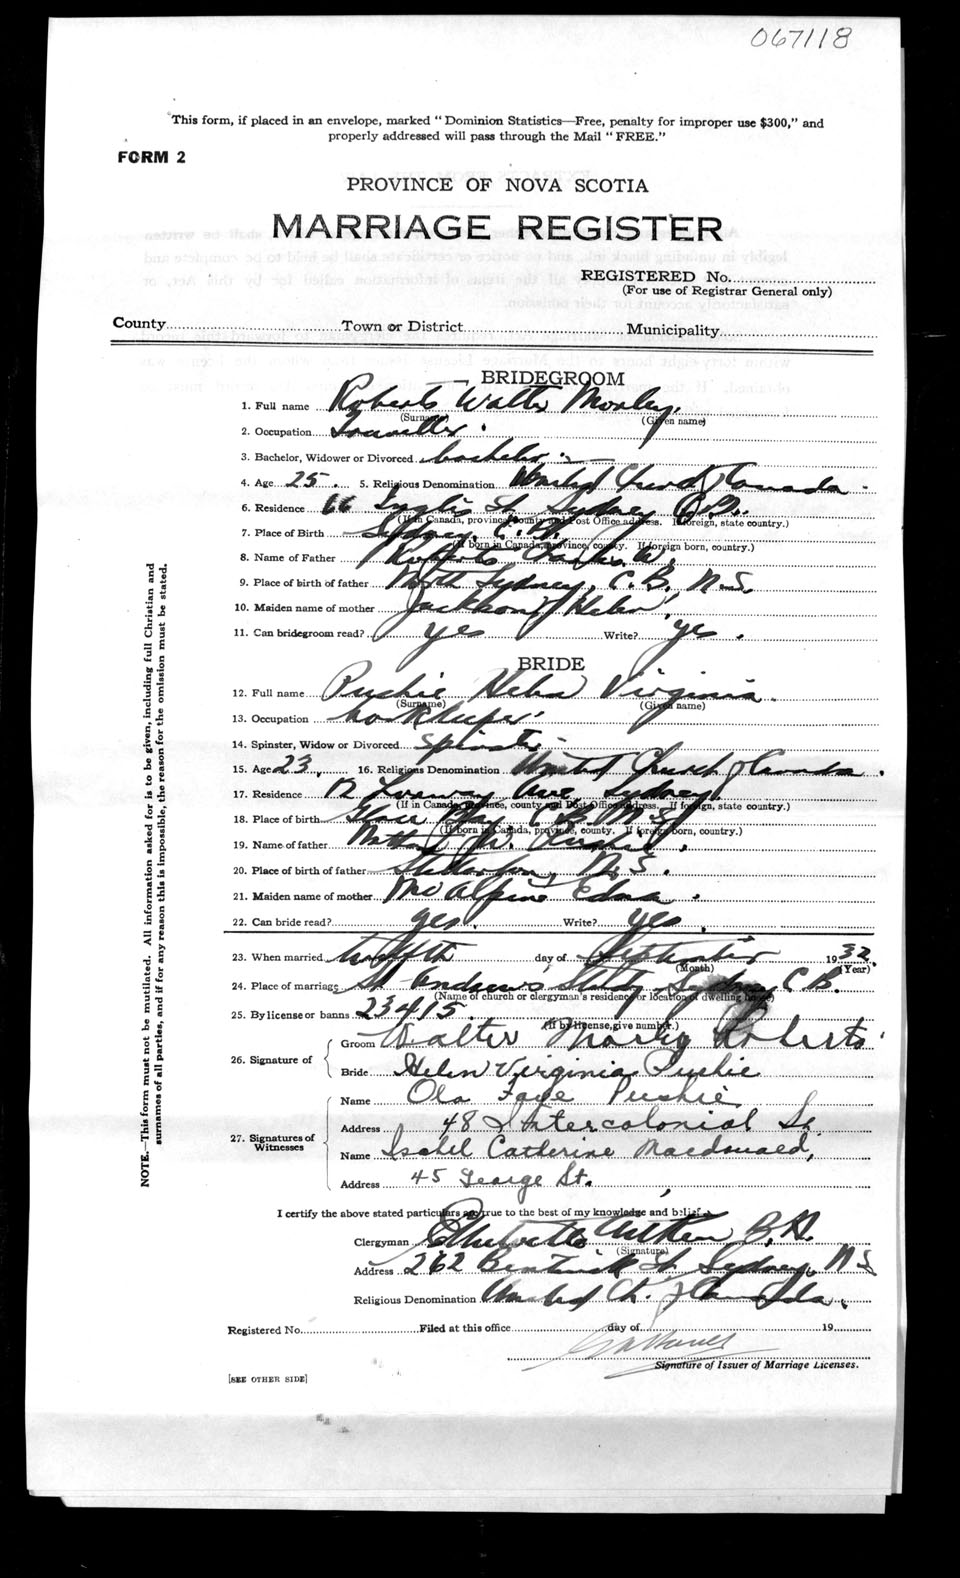 067118
This form, if placed in an envelope, marked "Dominion Statistics—Free, penalty for improper use $300," and
properly addressed will pass through the Mail "FREE."
FORM 2
PROVINCE OF NOVA SCOTIA
MARRIAGE REGISTER
REGISTERED No.
(For use of Registrar General only)
County Town or District Municipality
BRIDEGROOM
1. Full name Roberts Walter Morley.
(Surname) (Given name)
2. Occupation Traveller.
3. Bachelor, Widower or Divorced bachelor.
4. Age 25. 5. Religious Denomination United Church of Canada
6. Residence 66 Inglis St. Sydney C.B.
(If in Canada, province, county and Post Office address. If foreign, state country.)
7. Place of Birth Sydney, C.B.
(If born in Canada, province, county. If foreign born, country.)
8. Name of Father Roberts Charles W.
9. Place of birth of father North Sydney, C.B., N.S.
10. Maiden name of mother Jackson, Helen
11. Can bridegroom read? yes Write? yes.
BRIDE
12. Full name Pushie Helen Virginia
(Surname) (Given name)
13. Occupation bookkeeper
14. Spinster, Widow or Divorced spinster
15. Age 23. 16. Religious Denomination United Church of Canada.
17. Residence 12 Ave, Sydney
(If in Canada, province, county and Post Office address. If foreign, state country.)
18. Place of birth Glace Bay C.B. N.S.
(If born in Canada, province, county. If foreign born, country.)
19. Name of father W. Pushie.
20. Place of birth of father Stellarton, N.S.
21. Maiden name of mother McAlpine Edna.
22. Can bride read? yes. Write? yes.
23. When married twelfth day of September 1932.
(Month) (Year)
24. Place of marriage St. Andrew's Study, Sydney C.B.
(Name of church or clergyman's residence or location of dwelling house)
25. By license or banns 23415.
(If by license, give number.)
26. Signature of Groom Walter Morley Roberts
Bride Helen Virginia Pushie
27. Signatures of Witnesses Name Ola Faye Pushie
Address 48 Intercolonial St.
Name Isabel Catherine Macdonald,
Address 45 George St.
I certify the above stated particulars are true to the best of my knowledge and belief.
Clergyman Aitken B.A.
(Signature)
Address 262 Bentinck St. Sydney, N.S.
Religious Denomination United Ch. of Canada.
Registered No. Filed at this office day of 19
Signature of Issuer of Marriage Licenses.
[SEE OTHER SIDE]
NOTE.—This form must not be mutilated. All information asked for is to be given, including full Christian and
surnames of all parties, and if for any reason this is impossible, the reason for the omission must be stated.